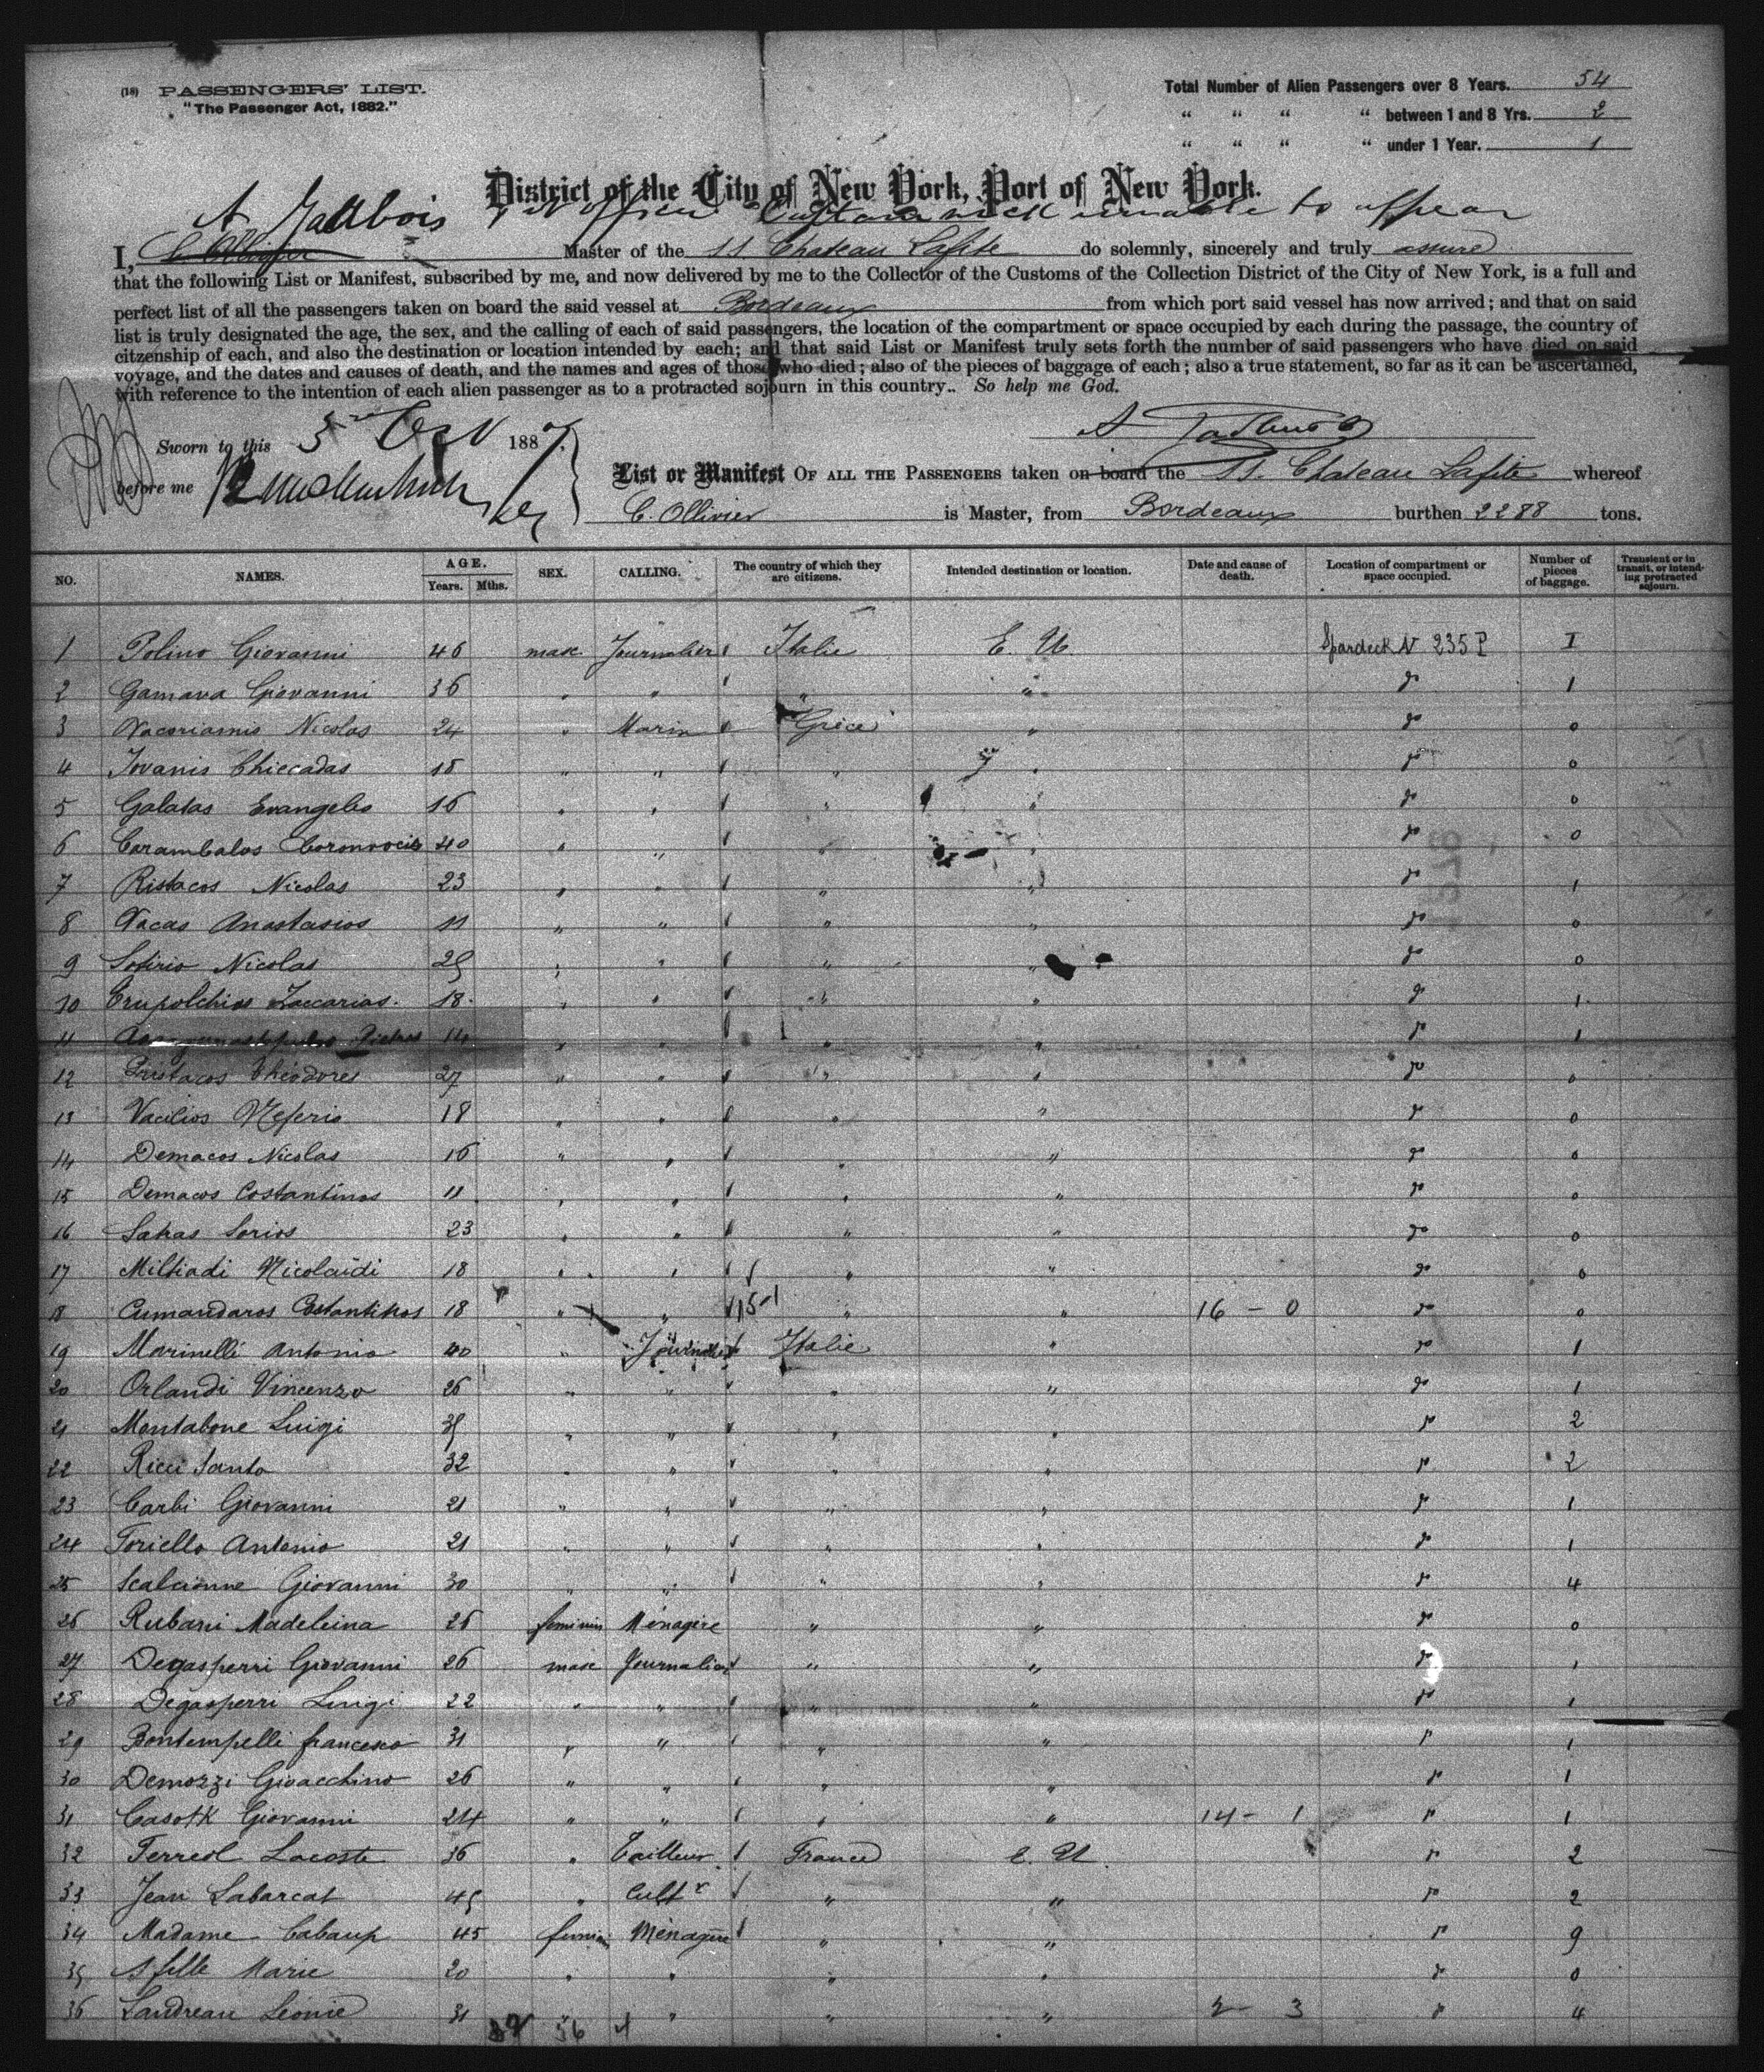 (18) PASSENGERS' LIST.
"The Passenger Act, 1882."
Total Number of Alien Passengers over 8 Years. 54
" " " " between 1 and 8 Yrs. 2
" " " " under 1 Year. 1
District of the City of New York, Port of New York.
A. 1st officer Captain sick unable to appear
I, C. Ollivier Master of the SS. Chateau Lafite do solemnly, sincerely and truly assure
that the following List or Manifest, subscribed by me, and now delivered by me to the Collector of the Customs of the Collection District of the City of New York, is a full and
perfect list of all the passengers taken on board the said vessel at Bordeaux from which port said vessel has now arrived; and that on said
list is truly designated the age, the sex, and the calling of each of said passengers, the location of the compartment or space occupied by each during the passage, the country of
citzenship of each, and also the destination or location intended by each; and that said List or Manifest truly sets forth the number of said passengers who have died on said
voyage, and the dates and causes of death, and the names and ages of those who died; also of the pieces of baggage of each; also a true statement, so far as it can be ascertained,
with reference to the intention of each alien passenger as to a protracted sojourn in this country.. So help me God.
Sworn to this 5 Oct 1887.
before me
List or Manifest OF ALL THE PASSENGERS taken on board the SS. Chateau Lafite whereof
C. Ollivier is Master, from Bordeaux burthen 2288 tons.
NO. NAMES. AGE. Years. Mths. SEX. CALLING. The country of which they are citizens. Intended destination or location. Date and cause of death. Location of compartment or space occupied. Number of pieces of baggage. Transient or in transit, or intending protracted sojourn.
1 Polino Giovanni 46 masc. Journalier Italie E. U Spardeck N 235 P I
2 Gamava Giovanni 36 " " " " do 1
3 Nicolas 24 " Marin Grèce " do 0
4 Jovanis Chiecadas 18 " " " " do 0
5 Galatas Evangelio 16 " " " " do 0
6 Carambalos 40 " " " " do 0
7 Ristacos Nicolas 23 " " " " do 1
8 Vacas Anastasios 11 " " " " do 0
9 Sotirio Nicolas 25 " " " " do 0
10 Zaccarias. 18 " " " " do 1
11 14 " " " " do 1
12 Theodores 27 " " " " do 0
13 Vacilios 18 " " " " do 0
14 Demacos Nicolas 16 " " " " do 0
15 Demacos Costantinos 11 " " " " do 0
16 Sakas Sorios 23 " " " " do 0
17 Miltiadi Nicolaidi 18 " " " " do 0
18 Cumandaros Costantinos 18 " " 15-1 " " 16 - 0 do 0
19 Marinelli Antonio 40 " Journalier Italie " do 1
20 Orlandi Vincenzo 26 " " " " do 1
21 Montabone Luigi 35 " " " " do 2
22 Ricci Santo 32 " " " " do 2
23 Carbi Giovanni 21 " " " " do 1
24 Toriello Antonio 21 " " " " do 1
25 Scalcionne Giovanni 30 " " " " do 4
26 Rubani Madeleina 26 feminin Ménagère " " do 0
27 Degasperri Giovanni 26 masc Journalier " " do 1
28 Degasperri Luigi 22 " " " " do 1
29 Bontempelli francesco 31 " " " " do 1
30 Demozzi Gioacchino 26 " " " " do 1
31 Giovanni 24 " " " " 14 - 1 do 1
32 Terreol Lacoste 36 " Tailleur France E. U. do 2
33 Jean Labarcat 45 " Cultr " " do 2
34 Madame Cabaup 45 femin Ménagère " " do 9
35 Sa fille Marie 20 " " " " do 0
36 Landreau Léonie 31 " " " " 2 - 3 do 4
56